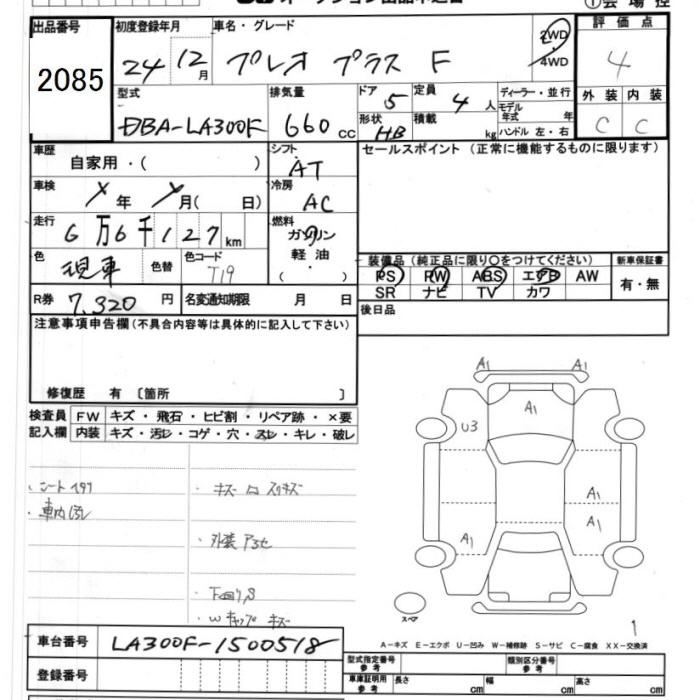 ①会場控
出品番号
2085
初度登録年月
24 12月
車名・グレード
プレオ プラス F
2WD
4WD
評価点
4
外装 内装
C C
型式
DBA-LA300F
排気量
660 cc
ドア 5
形状 HB
定員 4 人
積載 kg
ディーラー・並行
モデル年式 年
ハンドル 左・右
車歴
自家用・( )
シフト
AT
セールスポイント(正常に機能するものに限ります)
車検
年 月( 日)
冷房
AC
走行
6万6千127km
燃料
ガソリン
軽油
( ・ )
色
現車
色替
色コード
T19
装備品(純正品に限り〇をつけてください)
PS PW ABS エアB AW
SR ナビ TV カワ
新車保証書
有・無
R券 7,320 円
名変通知期限 月 日
後日品
注意事項申告欄(不具合内容等は具体的に記入して下さい)
修復歴 有〔箇所 〕
検査員記入欄
FW キズ・飛石・ヒビ割・リペア跡・×要
内装 キズ・汚レ・コゲ・穴・スレ・キレ・破レ
・車内汚レ
A1 A1
A1
U3
A1
A1
A1
スペア
1
A-キズ E-エクボ U-凹み W-補修跡 S-サビ C-腐食 XX-交換済
車台番号 LA300F-1500518
登録番号
型式指定番号 参考
類別区分番号 参考
車庫証明用 参考
長さ cm
幅 cm
高さ cm